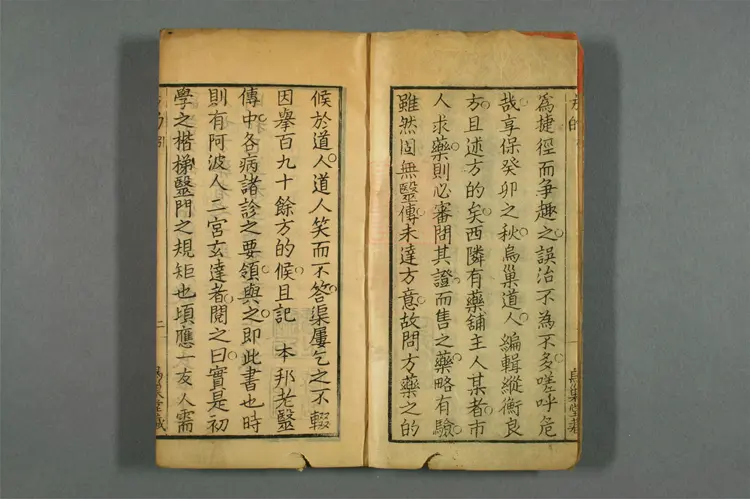 為捷徑而争趣之誤治不為不多嗟呼危
哉享保癸卯之秋烏巢道人編輯縱衡良
方且述方的矣西隣有藥舖主人某者市
人求藥則必審問其證而售之藥略有驗
雖然固無毉傳未達方意故問方藥之的
候於道人道人笑而不答渠屢乞之不輟
因擧百九十餘方的候且記 本邦老毉
傳中各病諸診之要領與之即此書也時
則有阿波人二宮玄達者閱之曰實是初
學之楷梯毉門之規矩也頃應一友人需